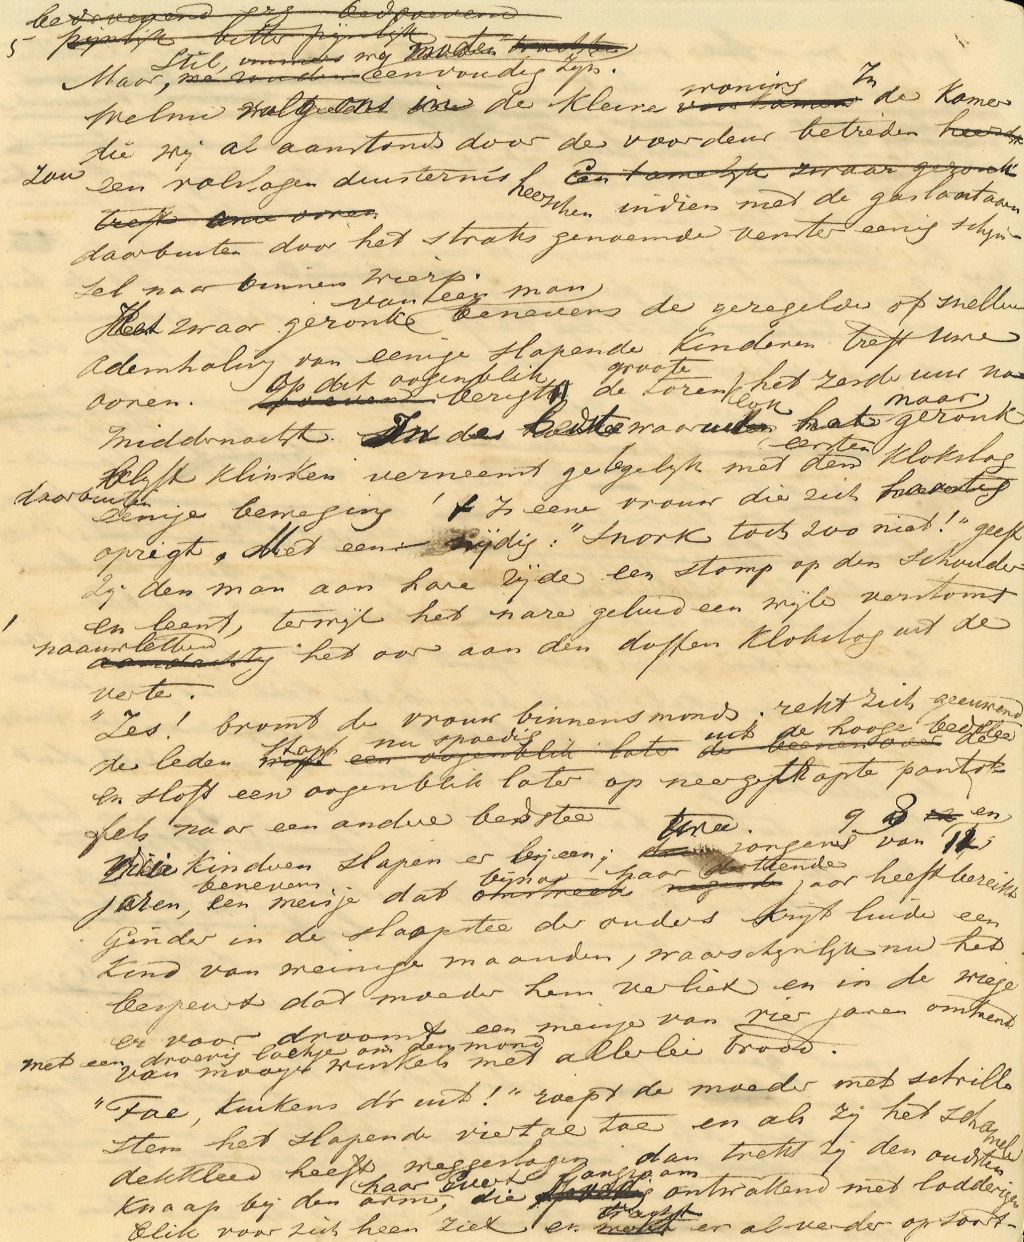 bevreesend gez bedroevend
5- pijnlijk bitter pijnlijk
Stil, immers wij moeten trachten
Maar, we zouden eenvoudig zijn.
Welnu volgt ons in de kleine woning voorkamer In de kamer
die wij al aanstonds door de voordeur betreden heerscht
zou een volslagen duisternis Een tamelijk zwaar geronk
treft onze ooren heerschen indien niet de gaslantaarn
daarbuiten door het straks genoemde venster eenig schijn-
sel naar binnen wierp.
Het zwaar geronk van een man benevens de geregelde of snellere
ademhaling van eenige slapende kinderen treft uwe
ooren. Op dit oogenblik berigt de groote torenklok het zesde uur na
middernacht. In de bedstee waaruit het naar geronk
blijft klinken verneemt gelijk met den eersten klokslag
daarbuiten eenige beweging! 't Is eene vrouw die zich haastig
oprigt. Met een nijdig: "Snork toch zoo niet!" geeft
zij den man aan hare zijde een stomp op den schouder
en leent, terwijl het nare geluid een wijle verstomt
naauwlettend aandachtig het oor aan den doffen klokslag uit de
verte.
"Zes! bromt de vrouw binnensmonds. rekt zich geeuwend
de leden stapt nu spoedig een oogenblik later uit de hooge bedstee de beenen over de
en sloft een oogenblik later op neergetrapte pantof-
fels naar een andere bedstee
Drie kinderen slapen er bijeen; twee jongens van 9 en 12
jaren, benevens een meisje dat bijna omstreeks haar jaar heeft bereikt
Ginder in de slaapstee der ouders krijt luide een
kind van weinige maanden, waarschijnlijk nu het
bespeurt dat moeder hem verliet en in de wieg
er voor droomt een meisje van vier jaren omtrent
met een droevig lachje om den mond
van mooye winkels met allerlei brood.
"Toe, kuikens d'r uit!" roept de moeder met schrille
stem het slapende viertal toe en als zij het schamele
dekkleed heeft weggeslagen dan trekt zij den oudsten
knaap haar Evert bij den arm, die langzaam ontwakend met lodderigen
blik voor zich heen ziet en er alverder op soort-